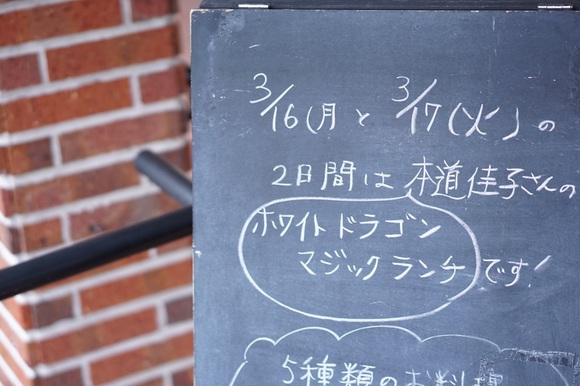 3/16(月)と3/17(火)の
2日間は本道佳子さんの
ホワイトドラゴン
マジックランチです!
5種類のお料理